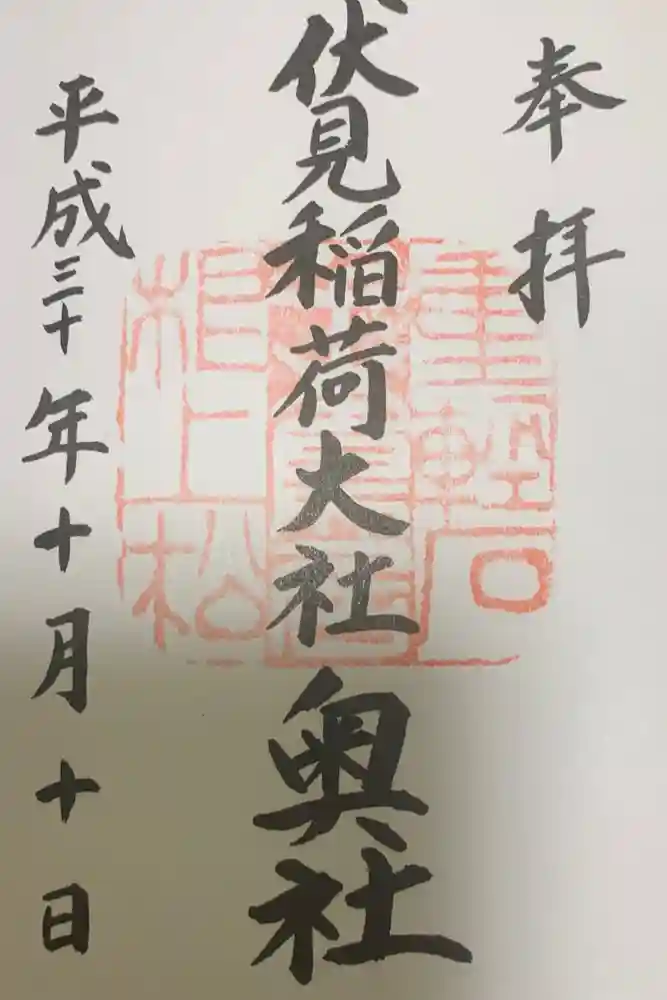 奉拝
伏見稲荷大社奥社
平成三十年十月十日